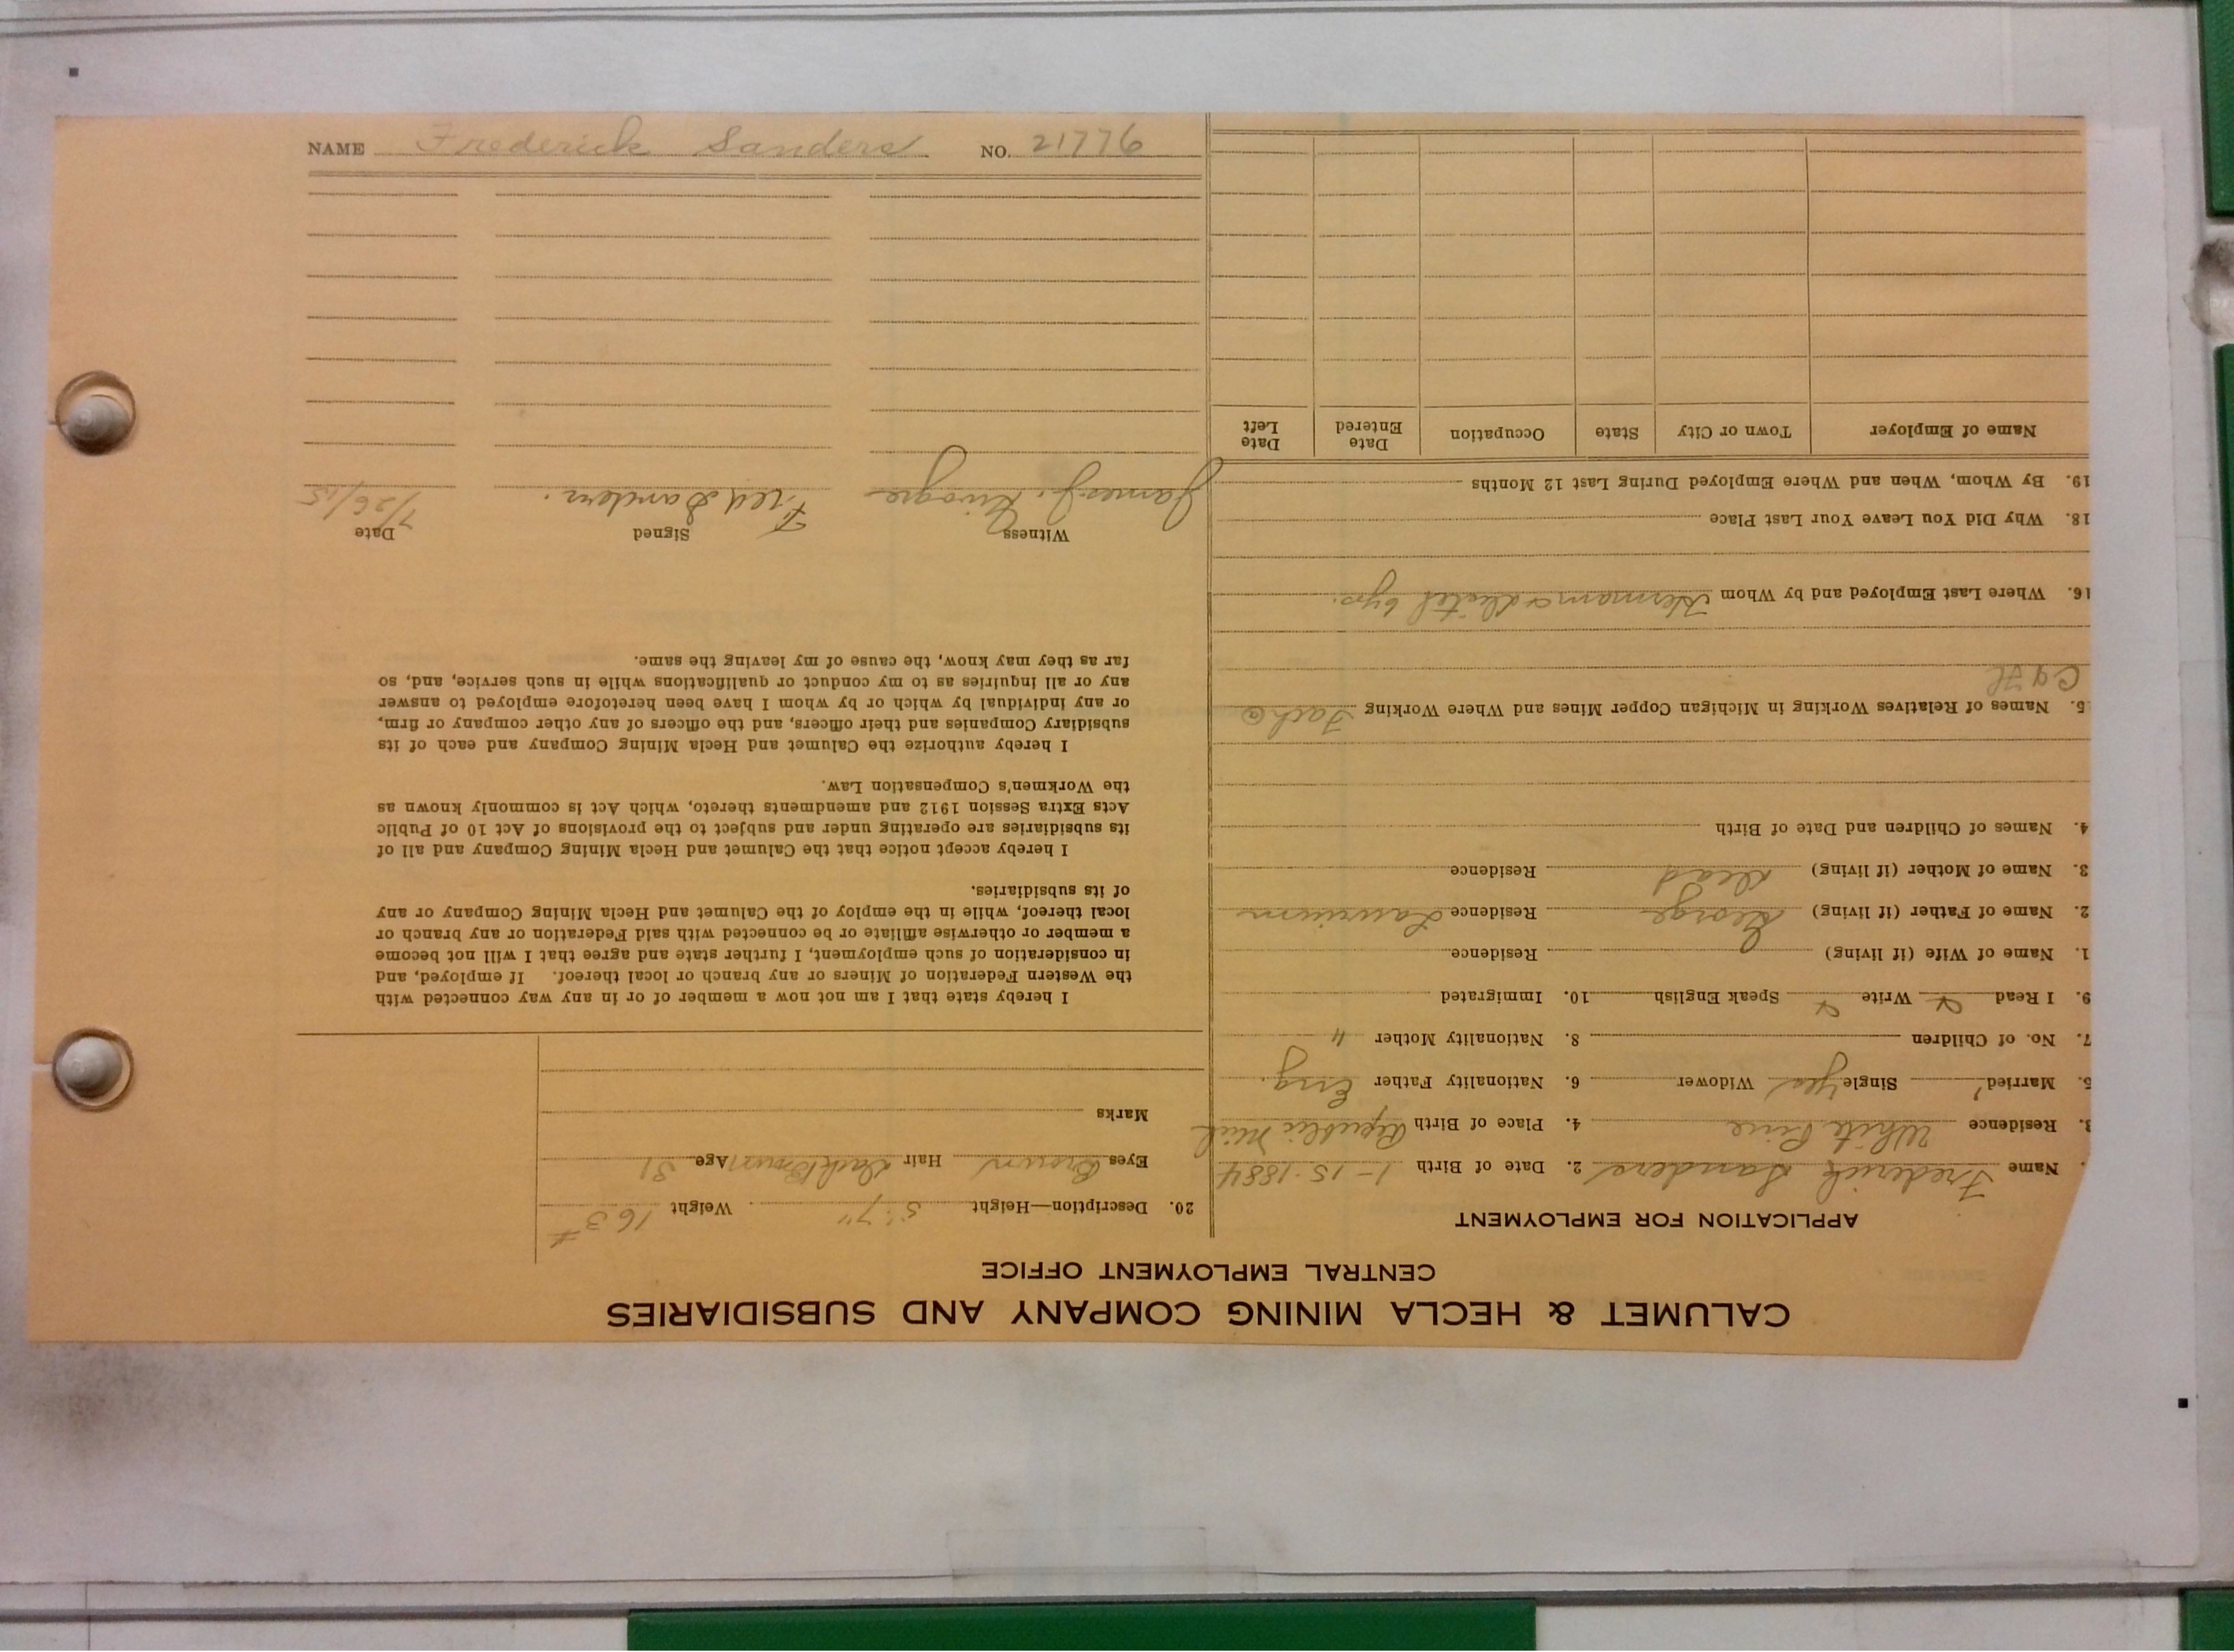 CALUMET & HECLA MINING COMPANY AND SUBSIDIARIES
CENTRAL EMPLOYMENT OFFICE
APPLICATION FOR EMPLOYMENT
. Name Frederick Sanders 2. Date of Birth 1-15-1884
3. Residence White Pine 4. Place of Birth Republic Mich
5. Married? Single Yes Widower 6. Nationality Father Eng.
7. No. of Children 8. Nationality Mother "
9. I Read Write Speak English 10. Immigrated
1. Name of Wife (if living) Residence
2. Name of Father (if living) George Residence Laurium
3. Name of Mother (if living) dead Residence
4. Names of Children and Date of Birth
5. Names of Relatives Working in Michigan Copper Mines and Where Working Fach @
C & H
16. Where Last Employed and by Whom
18. Why Did You Leave Your Last Place
19. By Whom, When and Where Employed During Last 12 Months
Name of Employer Town or City State Occupation Date Entered Date Left
20. Description—Height 5' 7" Weight 163 #
Eyes Brown Hair Dark Brown Age 31
Marks
I hereby state that I am not now a member of or in any way connected with
the Western Federation of Miners or any branch or local thereof. If employed, and
in consideration of such employment, I further state and agree that I will not become
a member or otherwise affiliate or be connected with said Federation or any branch or
local thereof, while in the employ of the Calumet and Hecla Mining Company or any
of its subsidiaries.
I hereby accept notice that the Calumet and Hecla Mining Company and all of
its subsidiaries are operating under and subject to the provisions of Act 10 of Public
Acts Extra Session 1912 and amendments thereto, which Act is commonly known as
the Workmen's Compensation Law.
I hereby authorize the Calumet and Hecla Mining Company and each of its
subsidiary Companies and their officers, and the officers of any other company or firm,
or any individual by which or by whom I have been heretofore employed to answer
any or all inquiries as to my conduct or qualifications while in such service, and, so
far as they may know, the cause of my leaving the same.
Witness Signed Date
James J. Fred Sanders. 7/26/15
NAME Frederick Sanders NO. 21776